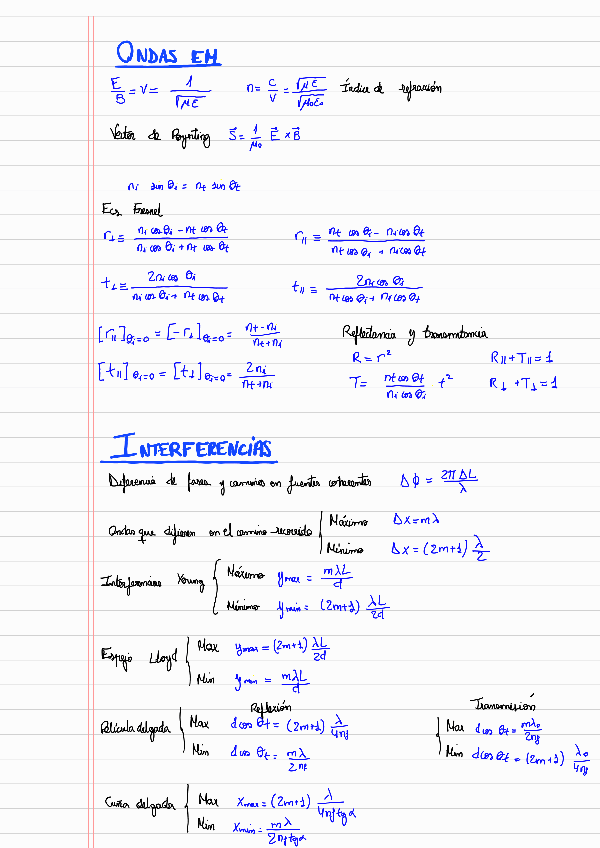 ONDAS EM
E/B = V = 1/√με n = c/v = √με/√μ₀ε₀ Índice de refracción
Vector de Poynting S⃗ = 1/μ₀ E⃗ × B⃗
nᵢ sen θᵢ = nt sen θt
Ecs Fresnel
r⊥ ≡ (nᵢ cos θᵢ − nt cos θt)/(nᵢ cos θᵢ + nt cos θt) r∥ ≡ (nt cos θᵢ − nᵢ cos θt)/(nt cos θᵢ + nᵢ cos θt)
t⊥ ≡ 2nᵢ cos θᵢ/(nᵢ cos θᵢ + nt cos θt) t∥ ≡ 2nᵢ cos θᵢ/(nt cos θᵢ + nᵢ cos θt)
[r∥]θᵢ=0 = [−r⊥]θᵢ=0 = (nt − nᵢ)/(nt + nᵢ) Reflectancia y transmitancia
R = r² R∥ + T∥ = 1
[t∥]θᵢ=0 = [t⊥]θᵢ=0 = 2nᵢ/(nt + nᵢ) T = (nt cos θt)/(nᵢ cos θᵢ) t² R⊥ + T⊥ = 1
INTERFERENCIAS
Diferencia de fases y caminos en fuentes coherentes Δϕ = 2πΔL/λ
Ondas que difieren en el camino recorrido { Máximo Δx = mλ
Mínimo Δx = (2m+1) λ/2
Interferencias Young { Máximo ymax = mλL/d
Mínimo ymin = (2m+1) λL/2d
Espejo Lloyd { Max ymax = (2m+1) λL/2d
Min ymin = mλL/d
Reflexión Transmisión
Película delgada { Max d cos θt = (2m+1) λ/4nf { Max d cos θt = mλ₀/2nf
Min d cos θt = mλ/2nf Min d cos θt = (2m+1) λ₀/4nf
Cuña delgada { Max xmax = (2m+1) λ/4nf tg α
Min xmin = mλ/2nf tg α